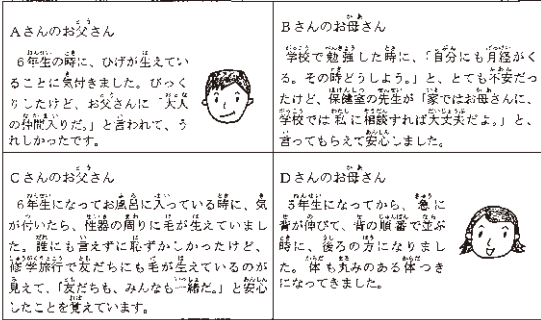 Aさんのお父さん
6年生の時に、ひげが生えてい
ることに気付きました。びっく
りしたけど、お父さんに「大人
の仲間入りだ。」と言われて、う
れしかったです。
Bさんのお母さん
学校で勉強した時に、「自分にも月経がく
る。その時どうしよう。」と、とても不安だっ
たけど、保健室の先生が「家ではお母さんに、
学校では私に相談すれば大丈夫だよ。」と、
言ってもらえて安心しました。
Cさんのお父さん
6年生になってお風呂に入っている時に、気
が付いたら、性器の周りに毛が生えていまし
た。誰にも言えずに恥ずかしかったけど、
修学旅行で友だちにも毛が生えているのが
見えて、「友だちも、みんなも一緒だ。」と安心
したことを覚えています。
Dさんのお母さん
5年生になってから、急に
背が伸びて、背の順番で並ぶ
時に、後ろの方になりまし
た。体も丸みのある体つき
になってきました。